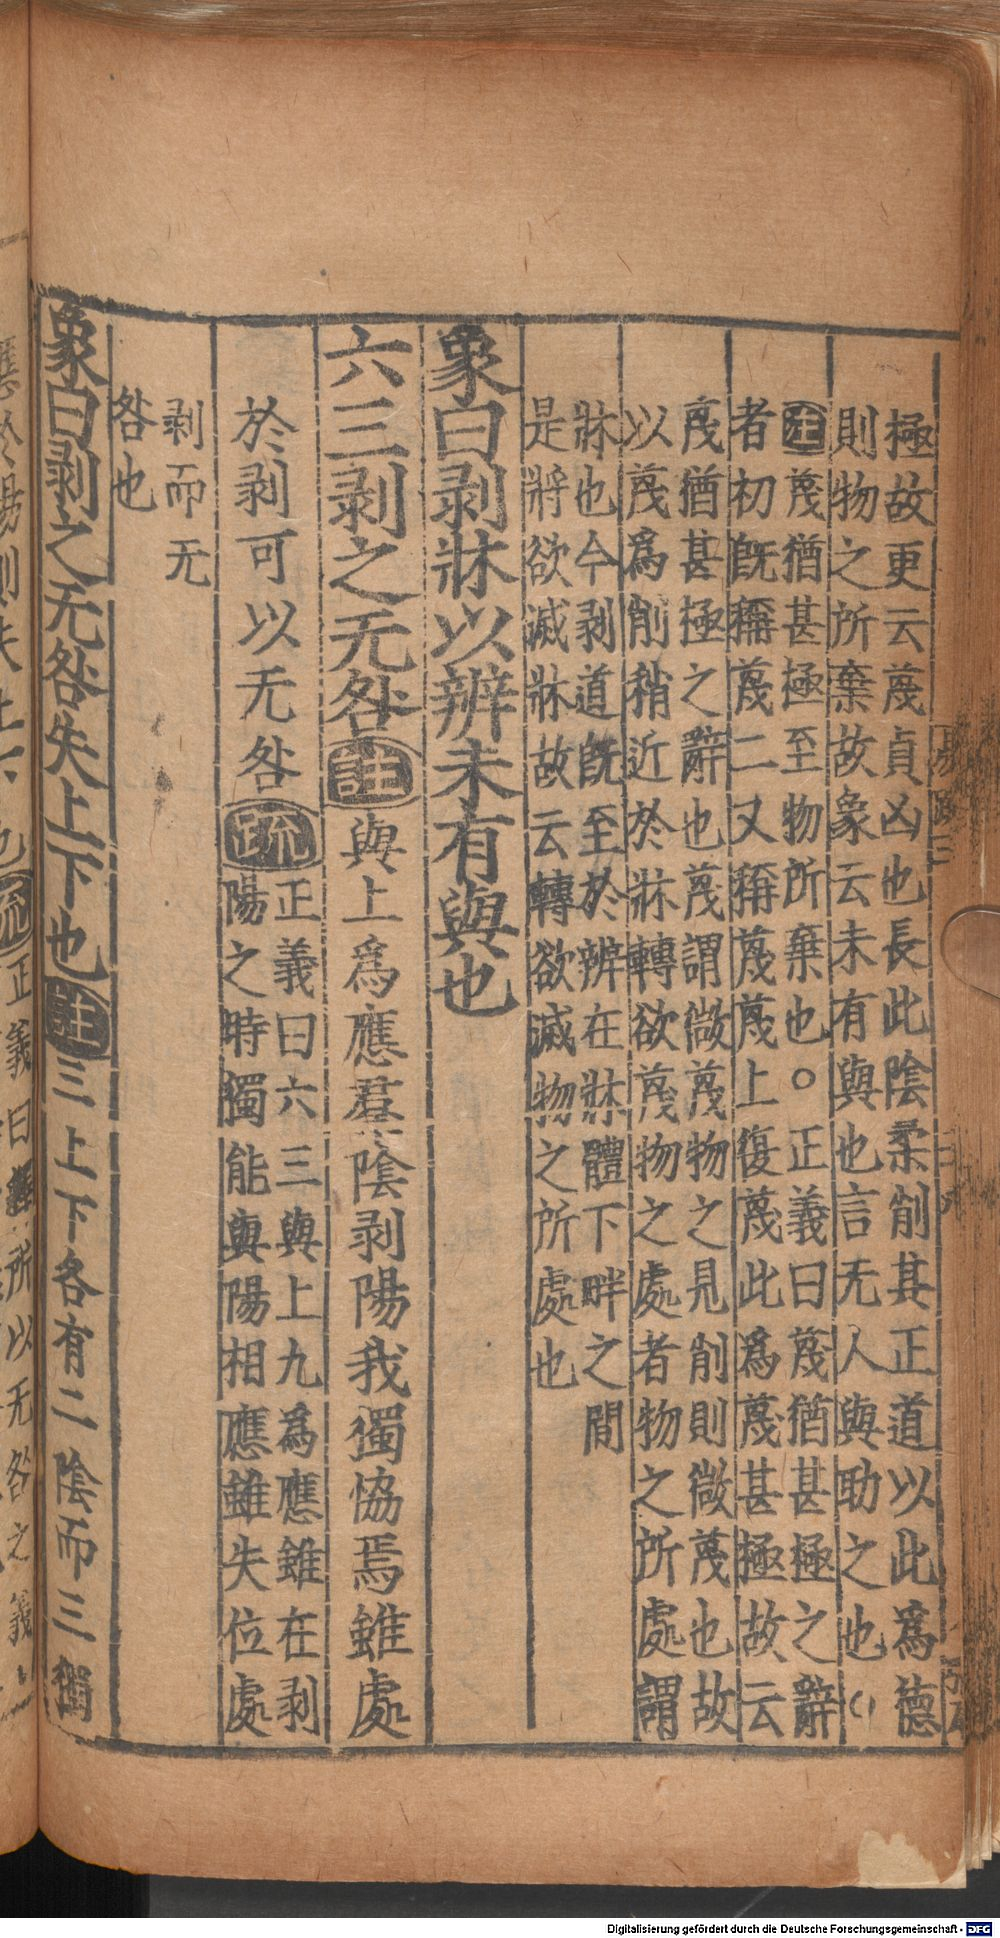 極故更云蔑貞凶也長此陰柔削其正道以此爲德
則物之所棄故象云未有與也言无人與助之也〇
註蔑猶甚極至物所棄也〇正義曰蔑猶甚極之辭
者初旣稱蔑二又稱蔑蔑上復蔑此爲蔑甚極故云
蔑猶甚極之辭也蔑謂微蔑物之見削則微蔑也故
以蔑爲削稍近於牀轉欲蔑物之處者物之所處謂
牀也今剥道旣至於辨在牀體下畔之間
是將欲滅牀故云轉欲滅物之所處也
象曰剥牀以辨未有與也
六三剥之无咎註與上爲應羣陰剥陽我獨協焉雖處
於剥可以无咎疏正義曰六三與上九為應雖在剥
陽之時獨能與陽相應雖失位處
剥而无
咎也
象曰剥之无咎失上下也註三上下各有二陰而三獨
Digitalisierung gefördert durch die Deutsche Forschungsgemeinschaft - DFG